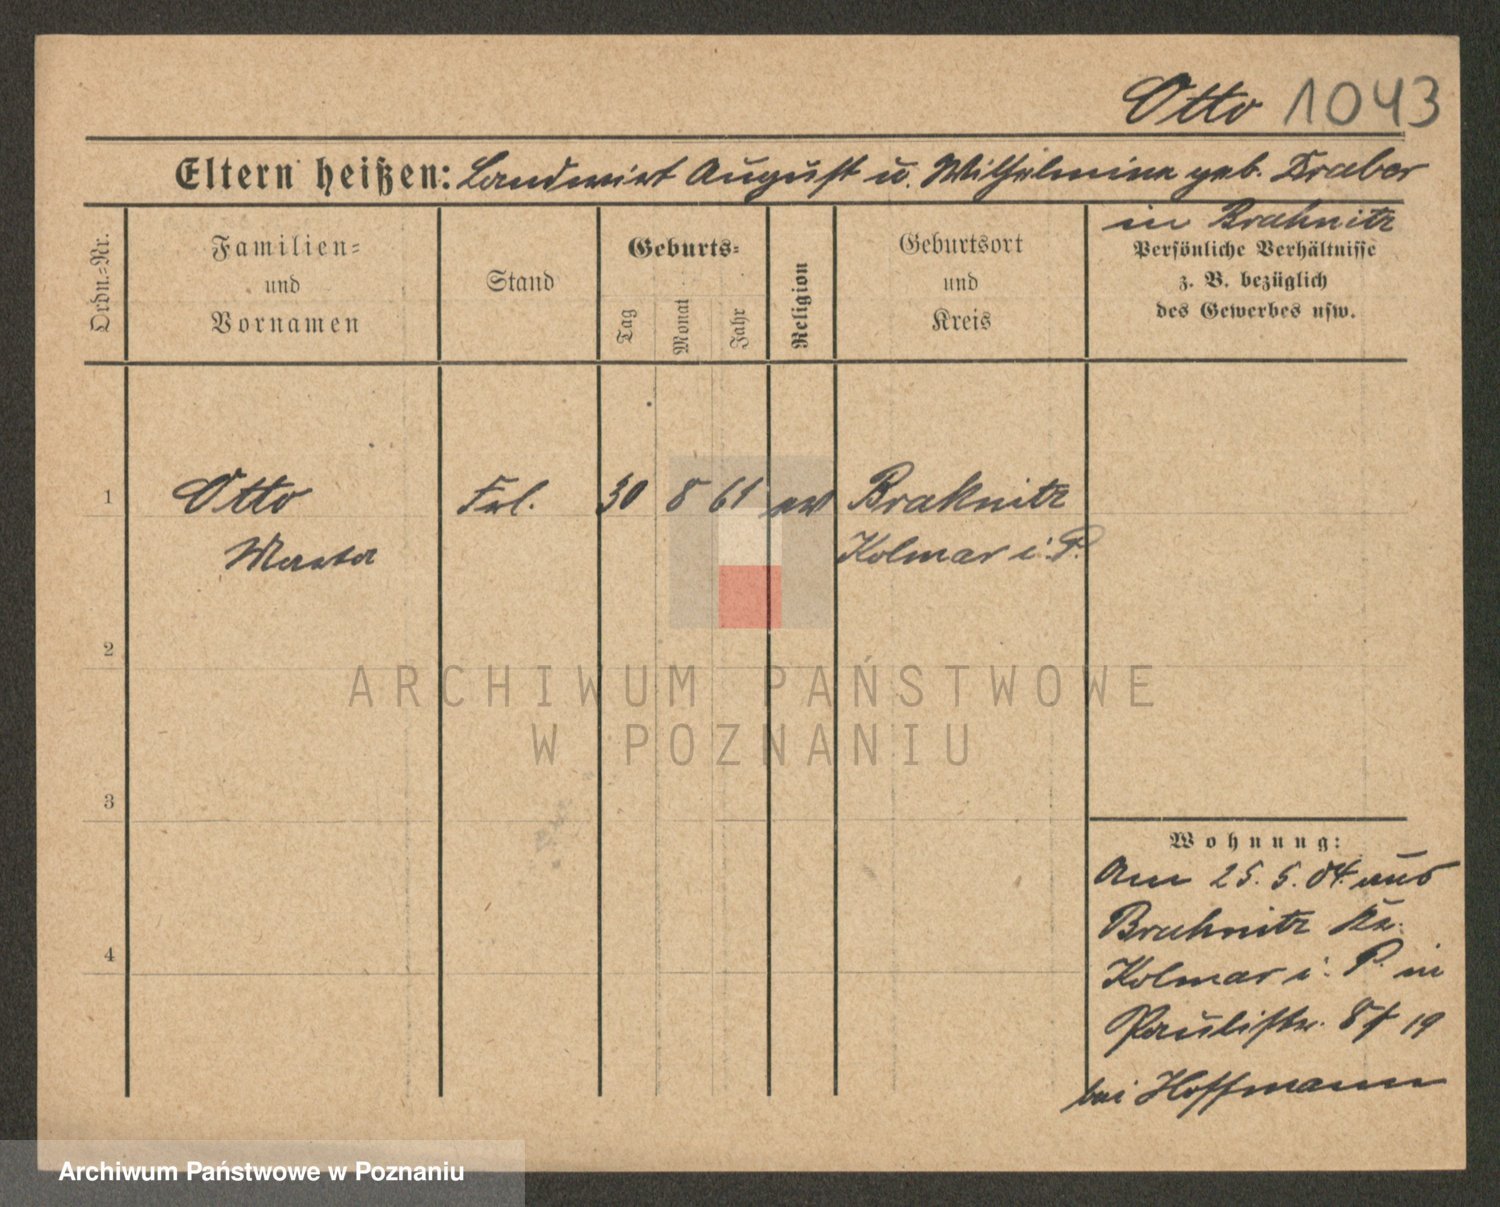 Otto 1043
Eltern heißen: Landwirt August u. Wilhelmine geb. Draber
in Braknitz
Ordn.=Nr.
Familien=
und
Vornamen
Stand
Geburts=
Tag
Monat
Jahr
Religion
Geburtsort
und
Kreis
Persönliche Verhältnisse
z. B. bezüglich
des Gewerbes usw.
1 Otto Frl. 30 8 61 ev Braknitz
Kolmar i. P.
2
3
4
Wohnung:
Am 25. 5. 04. aus
Braknitz Kr.
Kolmar i. P. in
Paulistr. 8 19
bei Hoffmann
ARCHIWUM PAŃSTWOWE
W POZNANIU
Archiwum Państwowe w Poznaniu